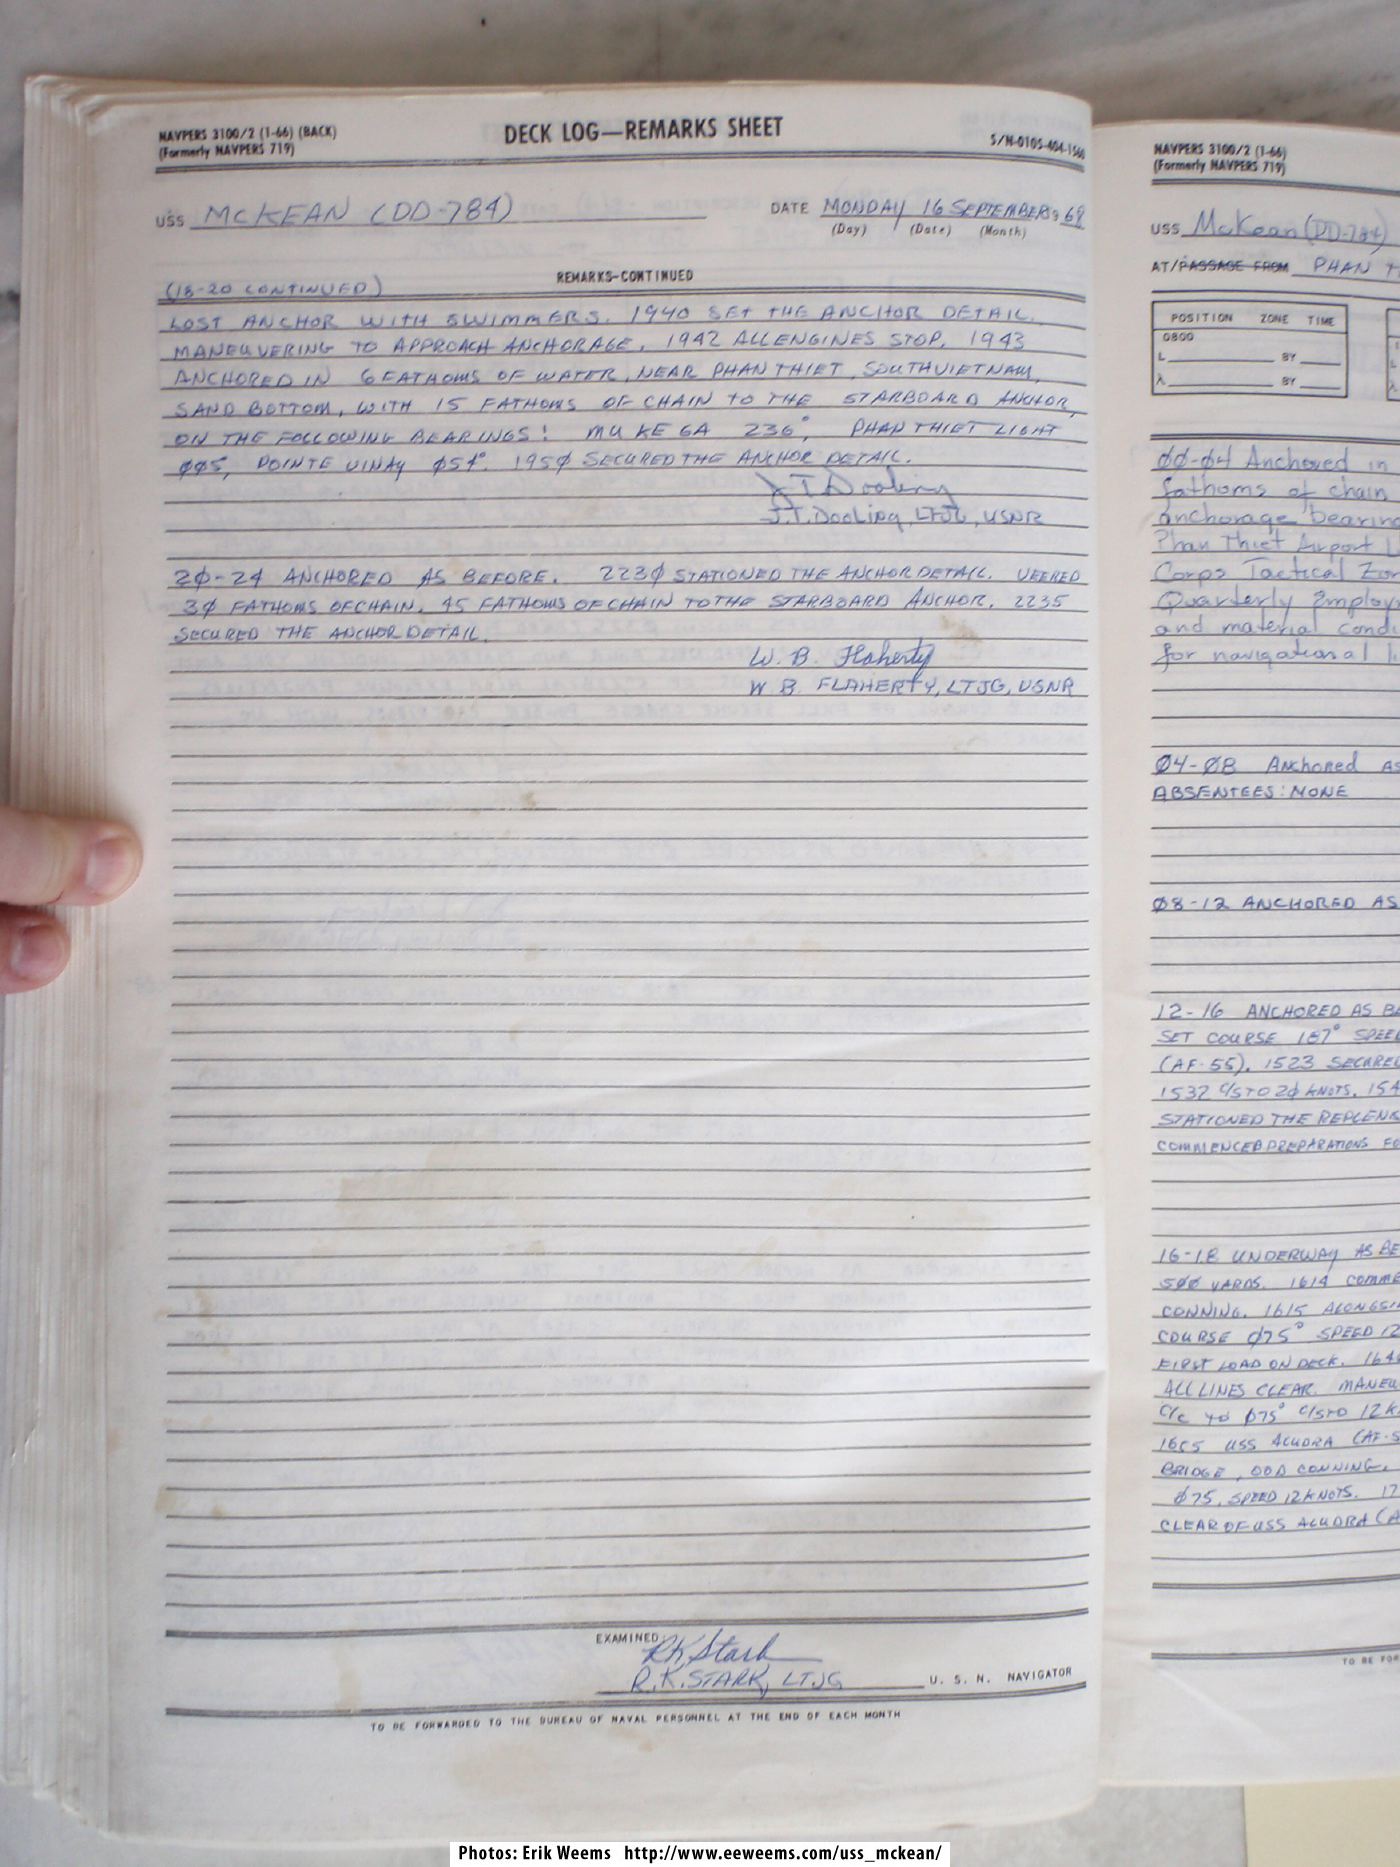 NAVPERS 3100/2 (1-66) (BACK)
(Formerly NAVPERS 719)
DECK LOG—REMARKS SHEET
S/N-0105-404-1560
USS MCKEAN (DD-784)
DATE MONDAY 16 SEPTEMBER 19 68
(Day) (Date) (Month)
REMARKS-CONTINUED
(18-20 CONTINUED)
LOST ANCHOR WITH SWIMMERS. 1940 SET THE ANCHOR DETAIL.
MANEUVERING TO APPROACH ANCHORAGE. 1942 ALL ENGINES STOP. 1943
ANCHORED IN 6 FATHOMS OF WATER, NEAR PHAN THIET, SOUTH VIETNAM,
SAND BOTTOM, WITH 15 FATHOMS OF CHAIN TO THE STARBOARD ANCHOR,
ON THE FOLLOWING BEARINGS: MUI KE GA 236°, PHAN THIET LIGHT
ØØ5°, POINTE VINAY Ø54°. 195Ø SECURED THE ANCHOR DETAIL.
J.T. Dooling
J.T. Dooling, LTJG, USNR
2Ø-24 ANCHORED AS BEFORE. 223Ø STATIONED THE ANCHOR DETAIL. VEERED
3Ø FATHOMS OF CHAIN. 45 FATHOMS OF CHAIN TO THE STARBOARD ANCHOR. 2235
SECURED THE ANCHOR DETAIL.
W. B. Flaherty
W B FLAHERTY, LTJG, USNR
EXAMINED:
R K Stark
R.K. STARK, LTJG U. S. N. NAVIGATOR
TO BE FORWARDED TO THE BUREAU OF NAVAL PERSONNEL AT THE END OF EACH MONTH
NAVPERS 3100/2 (1-66)
(Formerly NAVPERS 719)
USS McKean (DD-784)
AT/PASSAGE FROM PHAN
POSITION ZONE TIME
0800
L BY
λ BY
ØØ-Ø4 Anchored in
fathoms of chain
anchorage
Phan Thiet Airport
Corps Tactical
Quarterly
and material
for navigational
Ø4-Ø8 Anchored AS
ABSENTEES: NONE
Ø8-12 ANCHORED AS
12-16 ANCHORED AS
SET COURSE 187°
(AF-55). 1523
1532 C/S TO 2Ø KNOTS.
STATIONED THE
COMMENCED PREPARATIONS
16-18 UNDERWAY AS
5ØØ YARDS. 1614
CONNING. 1615
COURSE Ø75° SPEED 12
FIRST LOAD ON DECK.
ALL LINES CLEAR.
C/C TO Ø75° C/S TO 12
USS ALUDRA
BRIDGE, OOD CONNING.
Ø75, SPEED 12 KNOTS.
CLEAR OF USS ALUDRA
TO BE
Photos: Erik Weems http://www.eeweems.com/uss_mckean/